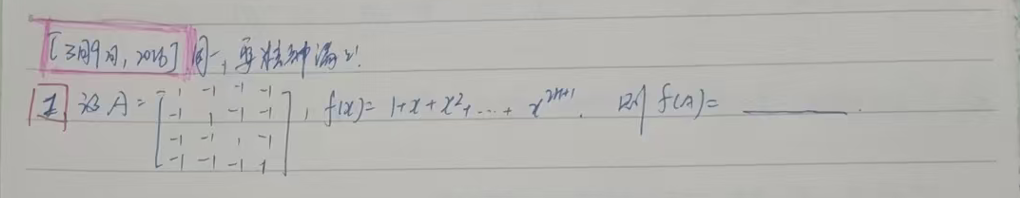 [3月9日, 2026] 周一, 要精神满分!
1 设 A = [1 -1 -1 -1
-1 1 -1 -1
-1 -1 1 -1
-1 -1 -1 1], f(x) = 1+x+x²+…+x²ⁿ⁺¹. 则 f(A) = ______.